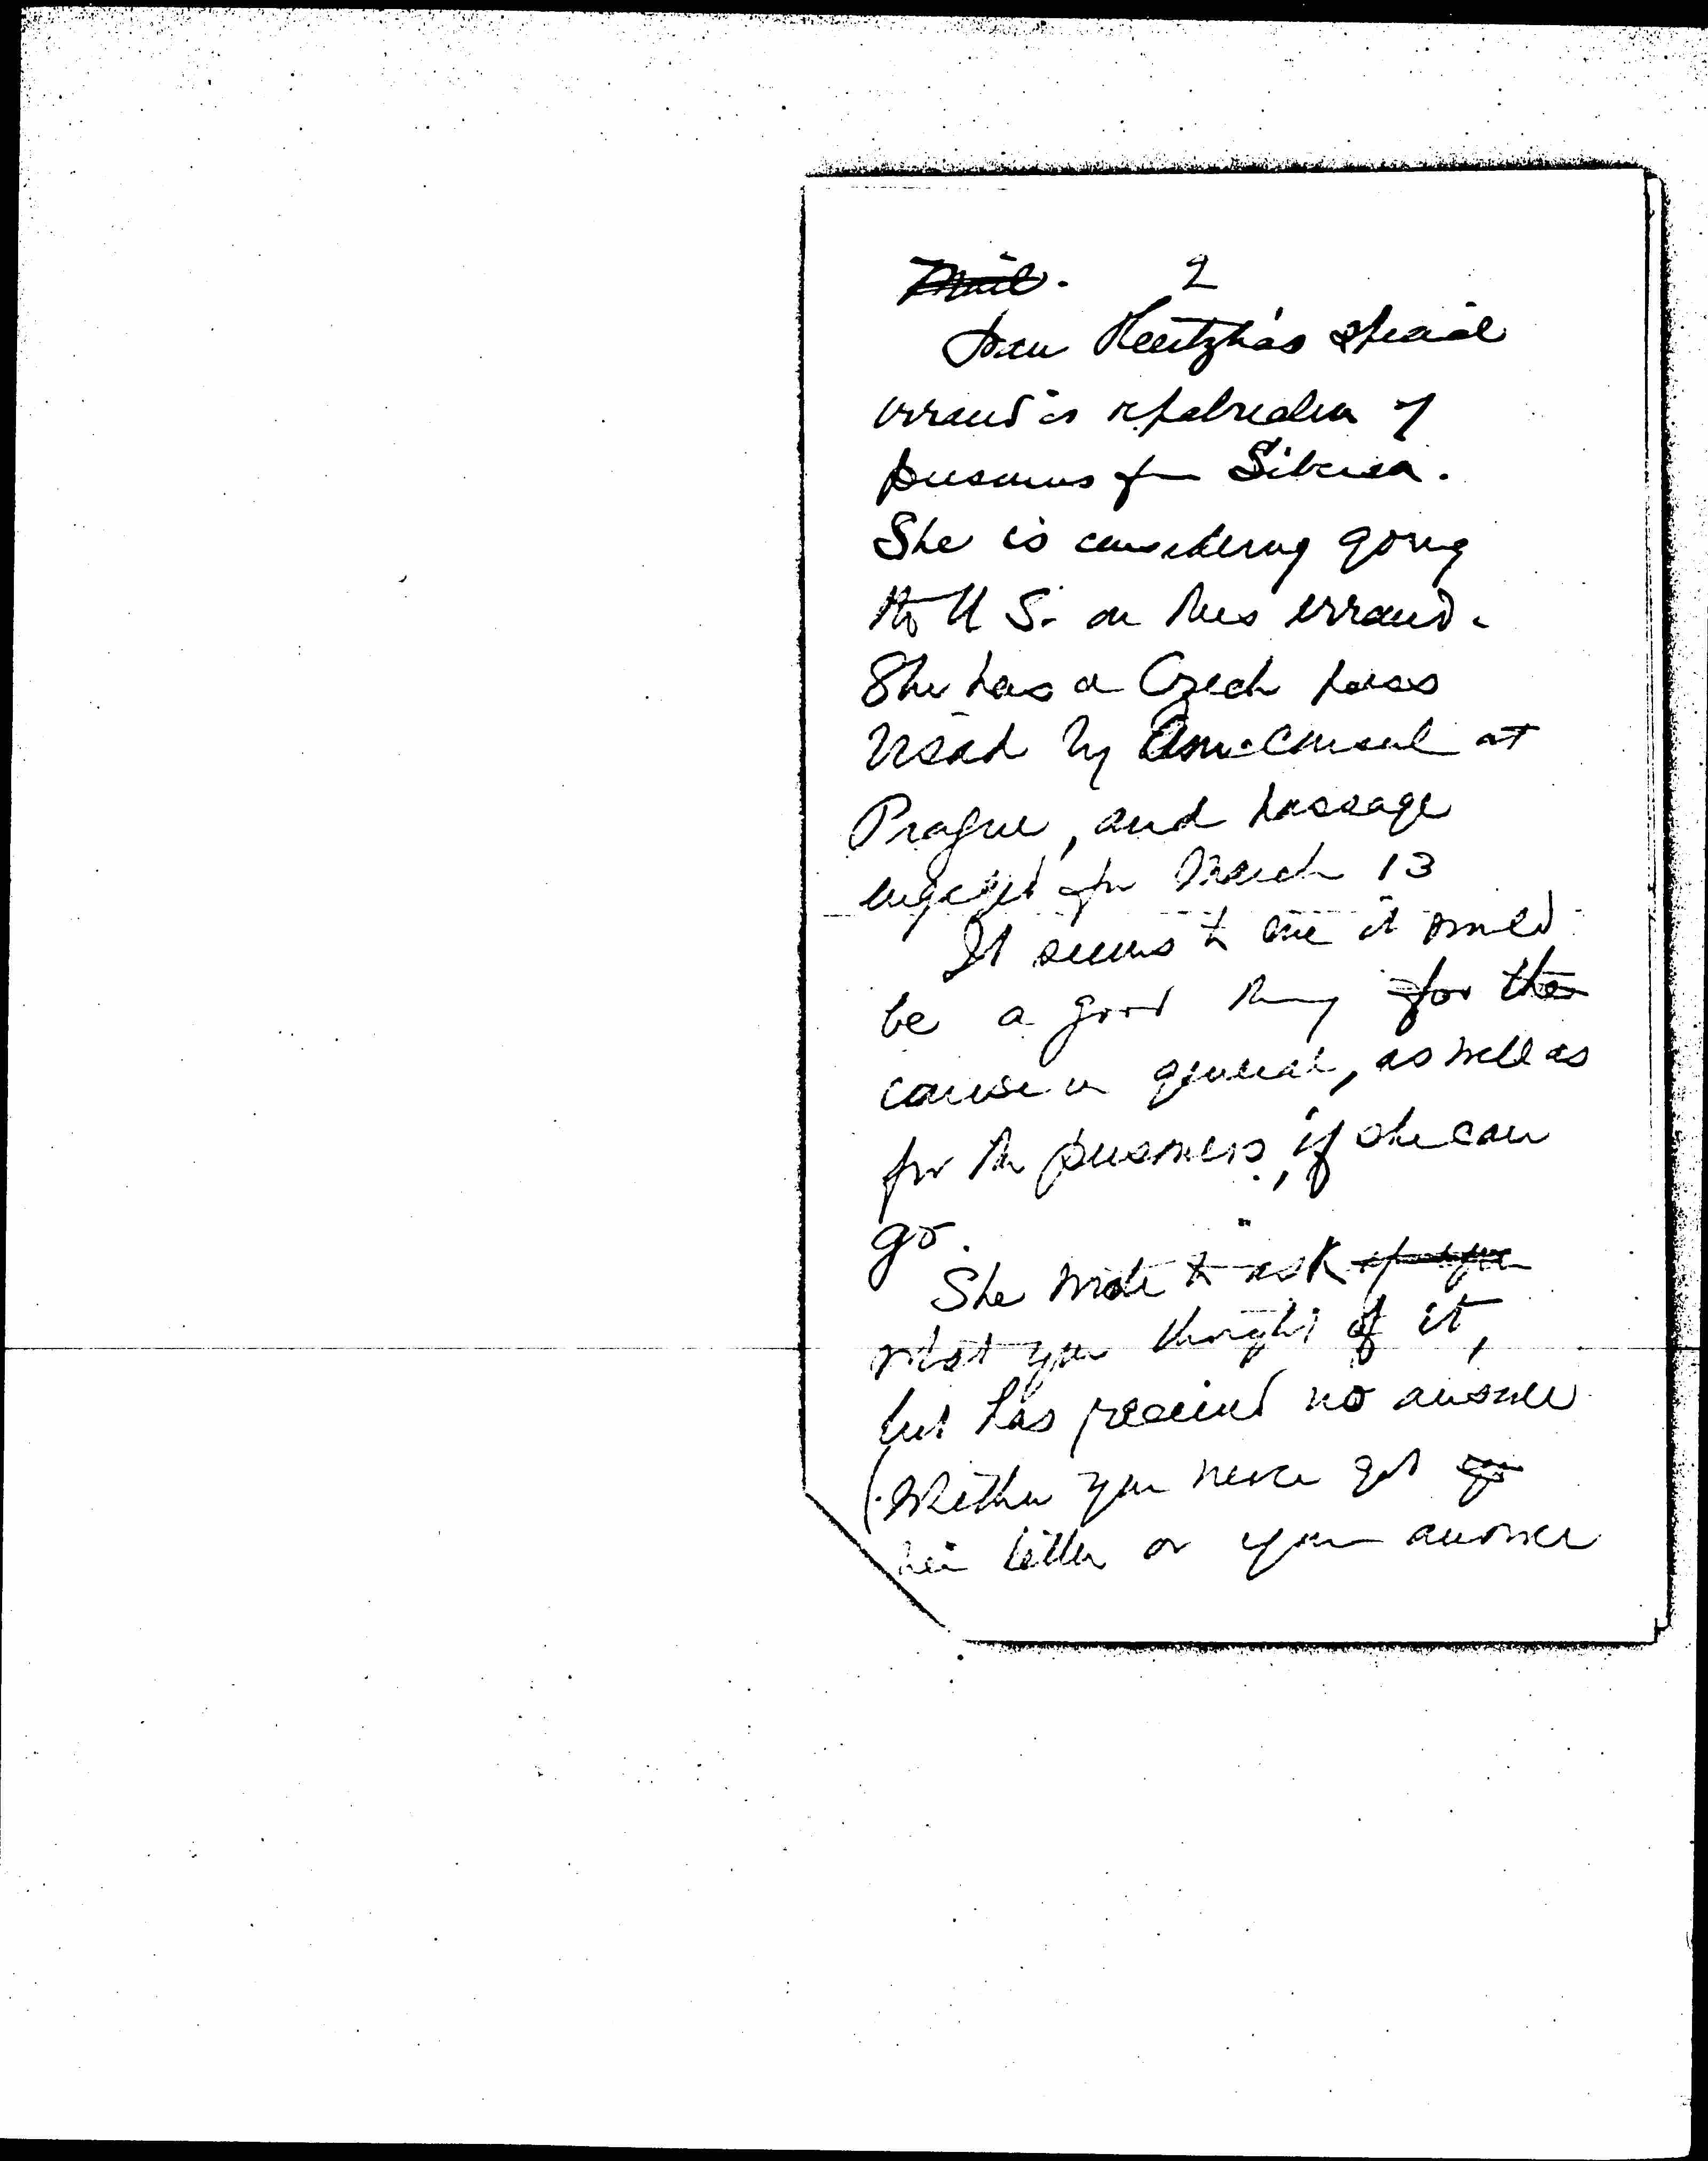 Mail. 2
Frau special
errand is repatriation of
prisoners from Siberia.
She is considering going
to U S. on this errand.
She has a Czech pass
visad by Am. Consul at
Prague, and passage
engaged for March 13
It seems to me it would
be a good thing for the
cause in general, as well as
for the prisoners, if she can
go.
She wrote to ask if you
what you thought of it,
but has received no answer
(Whether you never got
her letter or your answer